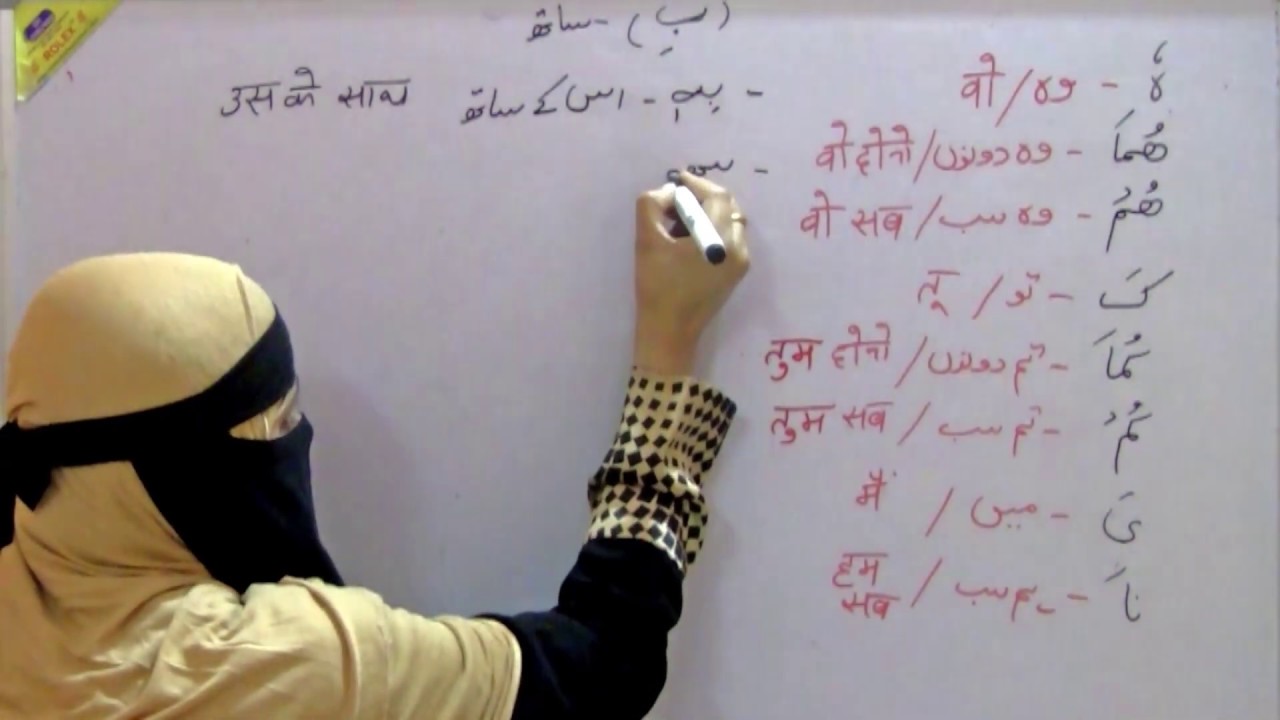 ROLEX
(بِ) - ساتھ
- بِهٖ - اس کے ساتھ उसके साथ
-
هُ - وہ / वो
هُمَا - وہ دونوں / वो दोनो
هُمْ - وہ سب / वो सब
كَ - تو / तू
كُمَا - تم دونوں / तुम दोनो
كُمْ - تم سب / तुम सब
یَ - میں / मैं
نَا - ہم سب / हम सब